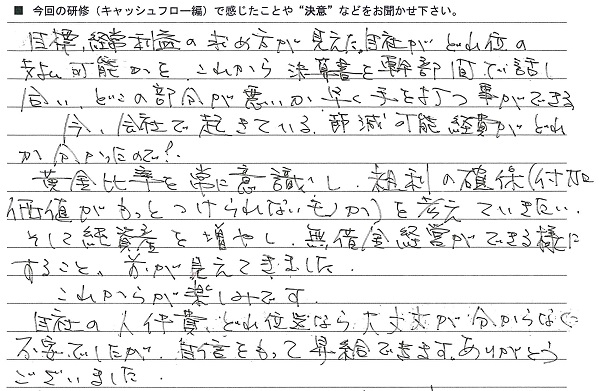 ■ 今回の研修（キャッシュフロー編）で感じたことや“決意”などをお聞かせ下さい。
目標、経常利益の求め方が見えた。自社がどれ位の
支払い可能かを、これから決算書を幹部間で話し
合い、どこの部分が悪いか早く手を打つ事ができる
今、会社で起きている、節減可能経費がどれ
か分かったので！
黄金比率を常に意識し、粗利の確保（付加
価値がもっとつけられないものか）を考えていきたい。
そして純資産を増やし、無借金経営ができる様に
すること、先が見えてきました。
これからが楽しみです。
自社の人件費、どれ位迄なら大丈夫か分からなくて
不安でしたが、自信をもって昇給できます。ありがとう
ございました。